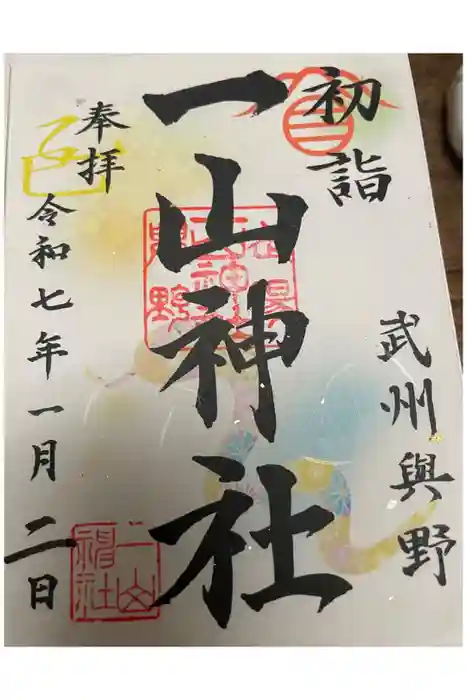 初詣
武州與野
一山神社
奉拝
令和七年一月二日
一山神社